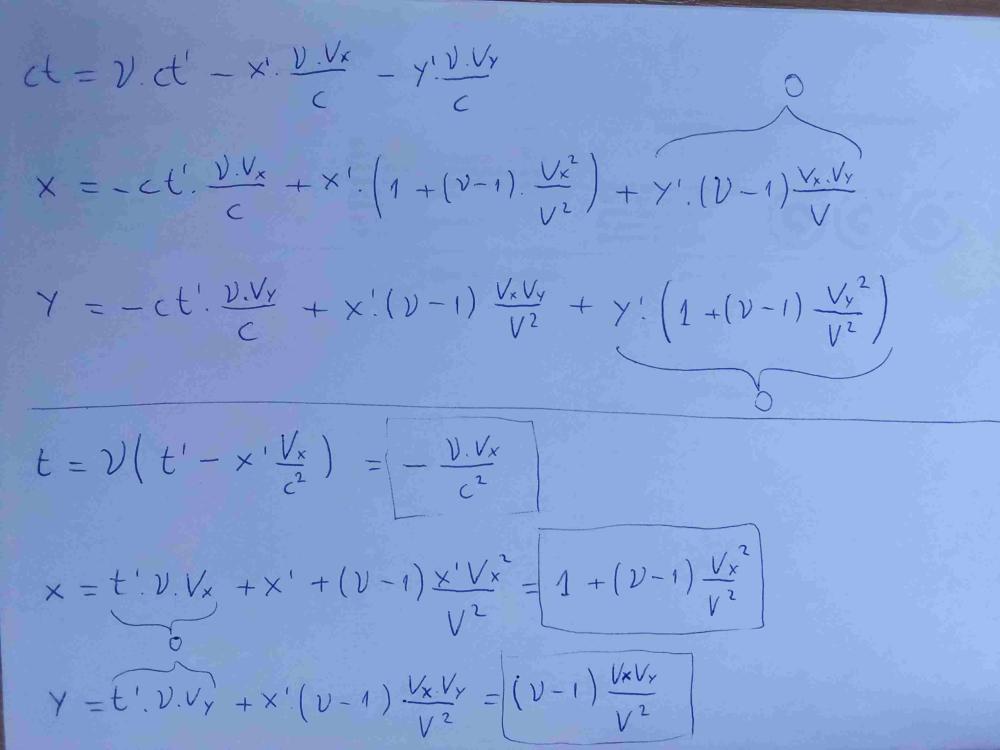 ct = ν.ct' − x'. ν.Vx/c − y'. ν.Vy/c
0
x = −ct'. ν.Vx/c + x'.(1 + (ν−1). Vx²/V²) + y'.(ν−1) Vx.Vy/V
y = −ct'. ν.Vy/c + x'.(ν−1) VxVy/V² + y'.(1 + (ν−1) Vy²/V²)
0
t = ν(t' − x' Vx/c²) = − ν.Vx/c²
x = t'.ν.Vx + x' + (ν−1) x'Vx²/V² = 1 + (ν−1) Vx²/V²
0
y = t'.ν.Vy + x'.(ν−1) Vx.Vy/V² = (ν−1) VxVy/V²